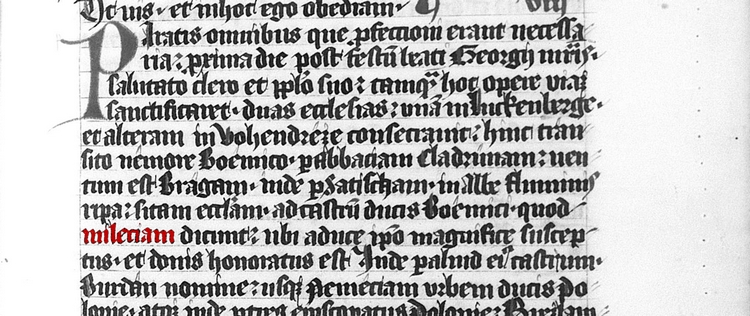 vis · et in hoc ego obediam · viii
Paratis omnibus que pfectioni erant necessa
ria: prima die post festū beati Georgij mr̄is ·
salutato clero et pplo suo: tamqͣ hoc opere viaȝ
sanctificaret · duas ecclesias: vnā in luckenberge ·
et alteram in Vohendreze consecrauit: hinc tran
sito nemore Boemico · p abbaciam Cladrunam: uen
tum est Bragam · inde p Satischam · in albe fluminis
ripa: sitam eccl̄am · ad castrū ducis Boemici · quod
mileciam dicunt: ubi a duce ip̄o magnifice suscep
tus · et donis honoratus est Inde p aliud eiꝰ castrum ·
Burdan nomine: usqꝫ Nemeciam vrbem ducis Po
lonie: